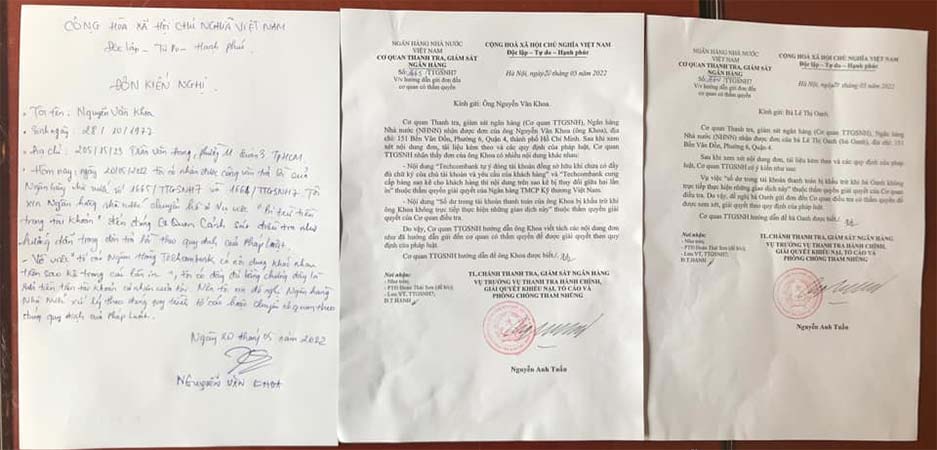 CỘNG HÒA XÃ HỘI CHỦ NGHĨA VIỆT NAM
Độc lập - Tự Do - Hạnh phúc.
ĐƠN KIẾN NGHỊ
Tôi tên: Nguyễn Văn Khoa
Sinh ngày: 28/10/1977
Địa chỉ: 205/15/23 Trần Văn Đang, phường 11 Quận 3 TpHCM
Hôm nay, ngày 20/05/2022 tôi có nhận được công văn trả lời của
Ngân hàng nhà nước số 1665/TTGSNH7 và 1664/TTGSNH7. Tôi
xin Ngân hàng nhà nước chuyển hồ sơ Vụ việc "Bị trừ tiền
trong tài khoản" đến đúng Cơ Quan Cảnh sát điều tra như
hướng dẫn trong đơn trả lời theo quy định của Pháp luật.
Về việc tố cáo Ngân hàng Techcombank có nội dung khác nhau
trên sao kê trong các lần in
Nhà Nước xử lý theo đúng quy trình tố cáo hoặc chuyển
đúng quy định của Pháp Luật.
Ngày 20 tháng 05 năm 2022
NGUYỄN VĂN KHOA
NGÂN HÀNG NHÀ NƯỚC
VIỆT NAM
CƠ QUAN THANH TRA, GIÁM SÁT
NGÂN HÀNG
CỘNG HOÀ XÃ HỘI CHỦ NGHĨA VIỆT NAM
Độc lập - Tự do - Hạnh phúc
Số: 1665/TTGSNH7
V/v hướng dẫn gửi đơn đến
cơ quan có thẩm quyền
Hà Nội, ngày 20 tháng 05 năm 2022
Kính gửi: Ông Nguyễn Văn Khoa.
Cơ quan Thanh tra, giám sát ngân hàng (Cơ quan TTGSNH), Ngân hàng
Nhà nước (NHNN) nhận được đơn của ông Nguyễn Văn Khoa (ông Khoa), địa
chỉ: 151 Bến Vân Đồn, Phường 6, Quận 4, thành phố Hồ Chí Minh. Sau khi xem
xét nội dung đơn, tài liệu kèm theo và các quy định của pháp luật, Cơ quan
TTGSNH nhận thấy đơn của ông Khoa có nhiều nội dung khác nhau:
- Nội dung "Techcombank tự ý đóng tài khoản đồng sở hữu khi chưa có đầy
đủ chữ ký của chủ tài khoản và yêu cầu của khách hàng" và "Techcombank cung
cấp bảng sao kê cho khách hàng thì nội dung trên sao kê bị thay đổi giữa hai lần
in" thuộc thẩm quyền giải quyết của Ngân hàng TMCP Kỹ thương Việt Nam.
- Nội dung "Số dư trong tài khoản thanh toán của ông Khoa bị khấu trừ khi
ông Khoa không trực tiếp thực hiện những giao dịch này" thuộc thẩm quyền giải
quyết của Cơ quan điều tra.
Do vậy, Cơ quan TTGSNH hướng dẫn ông Khoa viết tách các nội dung đơn
như đã hướng dẫn gửi đến cơ quan có thẩm quyền để được giải quyết theo quy
định của pháp luật.
Cơ quan TTGSNH hướng dẫn để ông Khoa được biết./.
Nơi nhận:
- Như trên;
- PTD Đoàn Thái Sơn (để b/c);
- Lưu VT, TTGSNH7;
Đ.T.HẠNH
TL.CHÁNH THANH TRA, GIÁM SÁT NGÂN HÀNG
VỤ TRƯỞNG VỤ THANH TRA HÀNH CHÍNH,
GIẢI QUYẾT KHIẾU NẠI, TỐ CÁO VÀ
PHÒNG CHỐNG THAM NHŨNG
Nguyễn Anh Tuấn
NGÂN HÀNG NHÀ NƯỚC
VIỆT NAM
CƠ QUAN THANH TRA, GIÁM SÁT
NGÂN HÀNG
CỘNG HOÀ XÃ HỘI CHỦ NGHĨA VIỆT NAM
Độc lập - Tự do - Hạnh phúc
Số: 1664/TTGSNH7
V/v hướng dẫn gửi đơn đến
cơ quan có thẩm quyền
Hà Nội, ngày 20 tháng 05 năm 2022
Kính gửi: Bà Lê Thị Oanh.
Cơ quan Thanh tra, giám sát ngân hàng (Cơ quan TTGSNH), Ngân hàng
Nhà nước (NHNN) nhận được đơn của bà Lê Thị Oanh (bà Oanh), địa chỉ: 151
Bến Vân Đồn, Phường 6, Quận 4.
Sau khi xem xét nội dung đơn, tài liệu kèm theo và các quy định của pháp
luật, Cơ quan TTGSNH có ý kiến như sau:
Vụ việc "số dư trong tài khoản thanh toán bị khấu trừ khi bà Oanh không
trực tiếp thực hiện những giao dịch này" thuộc thẩm quyền giải quyết của Cơ quan
điều tra. Do vậy, đề nghị bà Oanh gửi đơn đến Cơ quan điều tra có thẩm quyền để
được xem xét, giải quyết theo quy định của pháp luật.
Cơ quan TTGSNH hướng dẫn để bà Oanh được biết./.
Nơi nhận:
- Như trên;
- PTD Đoàn Thái Sơn (để b/c);
- Lưu VT, TTGSNH7;
Đ.T.HẠNH
TL.CHÁNH THANH TRA, GIÁM SÁT NGÂN HÀNG
VỤ TRƯỞNG VỤ THANH TRA HÀNH CHÍNH,
GIẢI QUYẾT KHIẾU NẠI, TỐ CÁO VÀ
PHÒNG CHỐNG THAM NHŨNG
Nguyễn Anh Tuấn